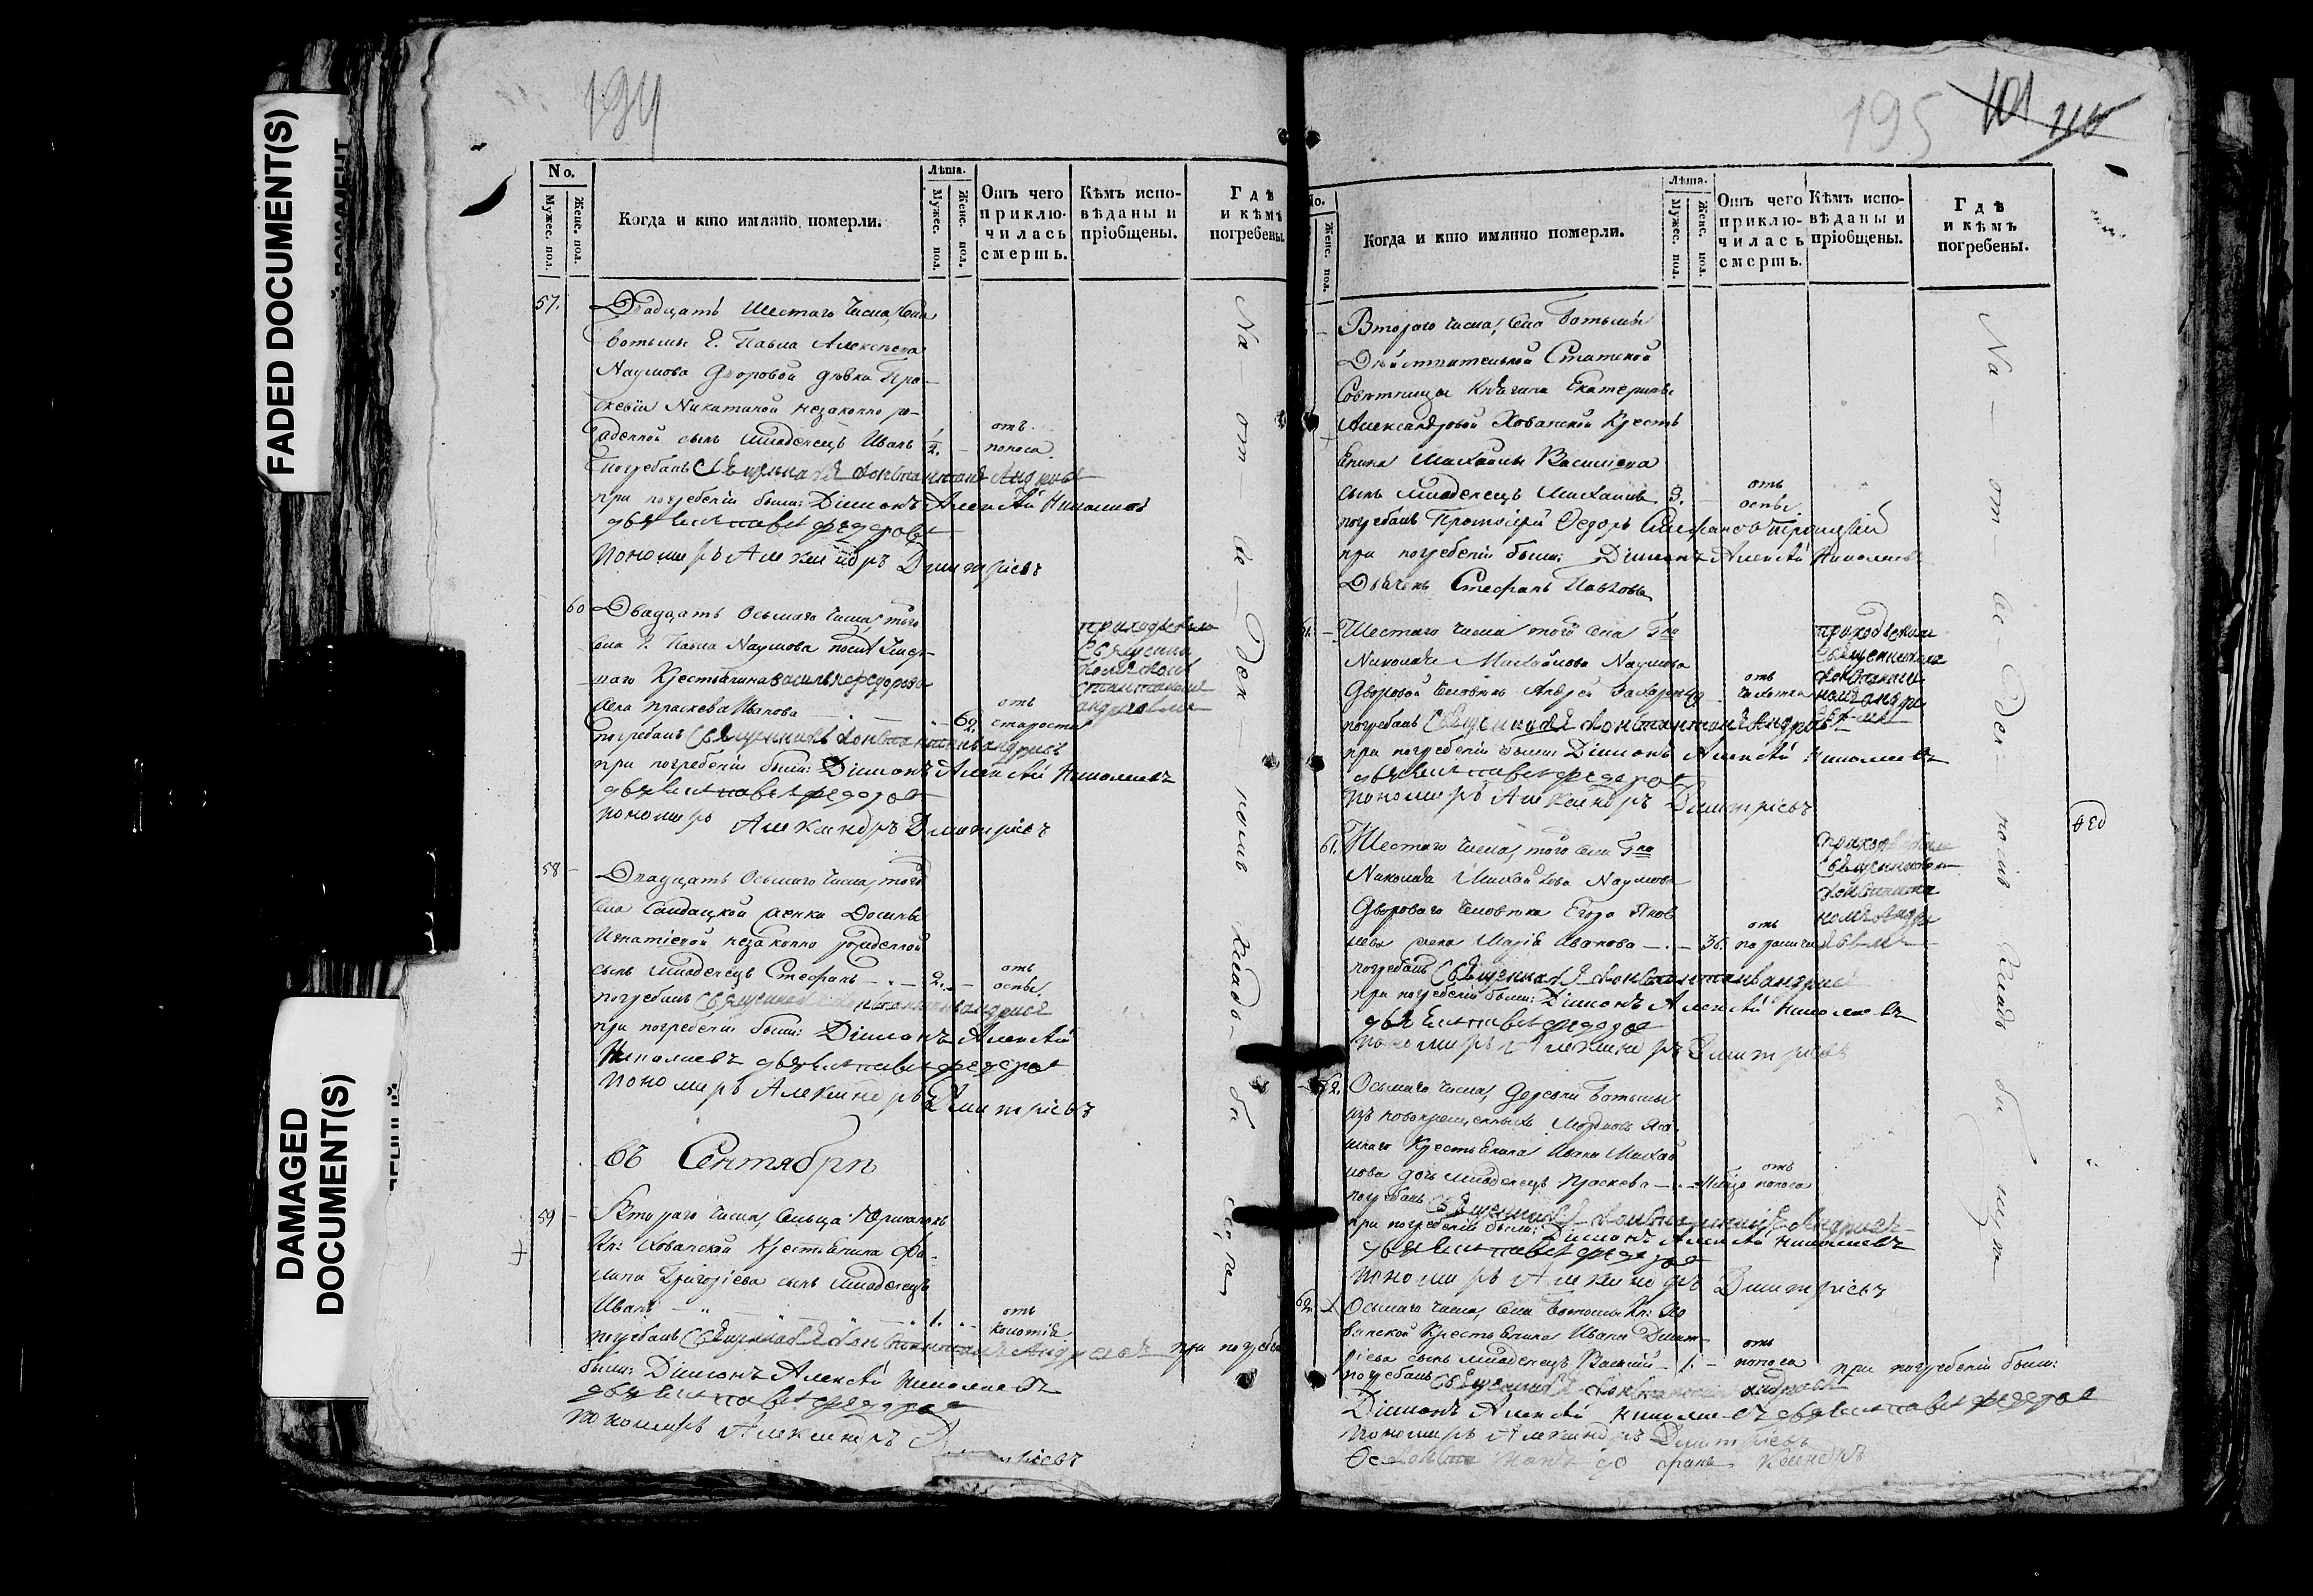 FADED DOCUMENT(S)
DAMAGED
DOCUMENT(S)
194
No.
Мужес. пол.
Женс. пол.
Когда и кто имянно померли.
Лѣта.
Мужес. пол.
Женс. пол.
Отъ чего
приклю-
чилась
смерть.
Кѣмъ испо-
вѣданы и
пріобщены.
Гдѣ
и кѣмъ
погребены.
57.
Двадцать шестаго числа, села
Ботьмы Г. Павла Алексѣева
Наумова дворовой дѣвки Пра-
сковіи Никитиной незаконно ро-
жденной сынъ младенецъ Иванъ 1/2. - отъ поноса.
погребалъ Священникъ Константинъ Андреевъ
при погребеніи были: Діаконъ Алексѣй Николаевъ
дьячекъ павелъ федоровъ
пономарь Александръ Дмитріевъ
60
Двадцать осьмаго числа, того
села Г. Павла Наумова послѣ умер-
шаго крестьянина василья федорова
жена праскева Иванова 62. отъ старости
приходскимъ Священникомъ Константиномъ андреевымъ
погребалъ Священникъ Константинъ андреевъ
при погребеніи были: Діаконъ Алексѣй Николаевъ
дьячекъ павелъ федоровъ
пономарь Александръ Дмитріевъ
58 -
Двадцать осьмаго числа, того
села Солдатской женки
Игнатіевой незаконно рожденной
сынъ младенецъ Стефанъ 2. - отъ оспы.
погребалъ Священникъ Константинъ андреевъ
при погребеніи были: Діаконъ Алексѣй
Николаевъ дьячекъ павелъ федоровъ
пономарь Александръ Дмитріевъ
Въ Сентябрѣ
59 -
Втораго числа, сельца
Кн: Хованской крестьянина Фи-
липа Григорiева сынъ младенецъ
Иванъ 1. - отъ
погребалъ Священникъ Константинъ Андреевъ при погребеніи
были: Діаконъ Алексѣй Николаевъ
дьячекъ павелъ федоровъ
пономарь Александръ Дмитріевъ
На отведенномъ кладбищѣ
195
101
No.
Женс. пол.
Когда и кто имянно померли.
Лѣта.
Мужес. пол.
Женс. пол.
Отъ чего
приклю-
чилась
смерть.
Кѣмъ испо-
вѣданы и
пріобщены.
Гдѣ
и кѣмъ
погребены.
Втораго числа, села Ботьмы
Дѣйствительной Статской
Совѣтницы Княгини Екатерины
Александровой Хованской кресть-
янина Михайлы Васильева
сынъ младенецъ Михаилъ 3. - отъ оспы.
погребалъ Протоіерей Ѳедоръ Троицкій
при погребеніи были: Діаконъ Алексѣй Николаевъ
Дьячекъ Стефанъ Павловъ
Шестаго числа того села Г-на
Николая Михайлова Наумова
дворовой человѣкъ Андрей отъ чахотки
приходскимъ Священникомъ Константиномъ андреевымъ
погребалъ Священникъ Константинъ Андреевъ
при погребеніи были: Діаконъ Алексѣй Николаевъ
дьячекъ павелъ федоровъ
пономарь Александръ Дмитріевъ
61.
Шестаго числа, того села Г-на
Николая Михайлова Наумова
дворового человѣка Егора Яков-
лева жена Марія Иванова 36. отъ
приходскимъ Священникомъ Константиномъ Андреевымъ
погребалъ Священникъ Константинъ андреевъ
при погребеніи были: Діаконъ Алексѣй Николаевъ
дьячекъ павелъ федоровъ
пономарь Александръ Дмитріевъ
62.
Осьмаго числа, деревни Ботьмы
изъ новокрещенныхъ Мордвовъ яса-
шнаго крестьянина Ивана Михай-
лова дочь младенецъ Праскева отъ поноса
погребалъ Священникъ Константинъ Андреевъ
при погребеніи были: Діаконъ Алексѣй Николаевъ
дьячекъ павелъ федоровъ
пономарь Александръ Дмитріевъ
62.
Осьмаго числа, села Ботьмы Кн: Хо-
ванской крестьянина Ивана Дмит-
ріева сынъ младенецъ Василій 1. - отъ поноса
погребалъ Священникъ Константинъ андреевъ при погребеніи были:
Діаконъ Алексѣй Николаевъ дьячекъ павелъ федоровъ
пономарь Александръ Дмитріевъ
На отведенномъ кладбищѣ